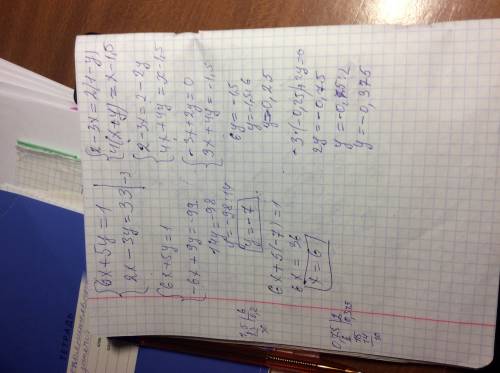 {6x+5y=1
{2x-3y=33 |·-3
{6x+5y=1
{-6x+9y=-99
14y=-98
y=-98:14
y=-7
6x+5·(-7)=1
6x=36
x=6
{2-3x=2(1-y)
{4(x+y)=x-1,5
{2-3x=2-2y
{4x+4y=x-1,5
{-3x+2y=0
{3x+4y=-1,5
6y=-1,5
y=-1,5:6
y=-0,25
-3·(-0,25)+2y=0
2y=-0,75
y=-0,75:2
y=-0,375
ТЕТРАДЬ